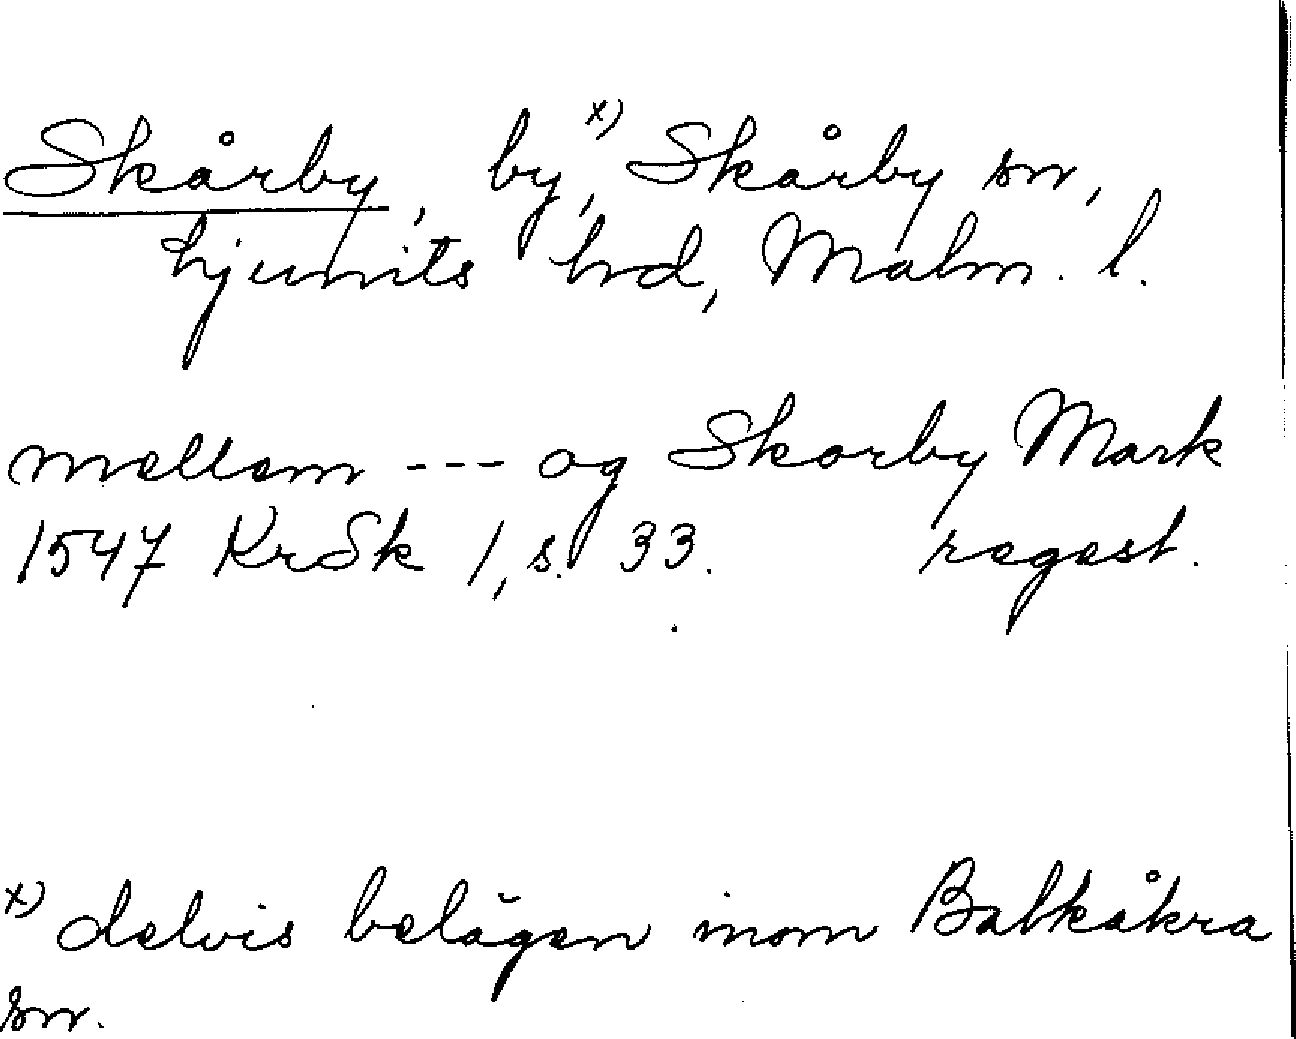 Skårby, by,ˣ⁾ Skårby sn,
Ljunits hd, Malm. l.
mellem --- og Skorby Mark
1547 KrSk 1, s. 33. regest.
ˣ⁾ delvis belägen inom Balkåkra
sn.